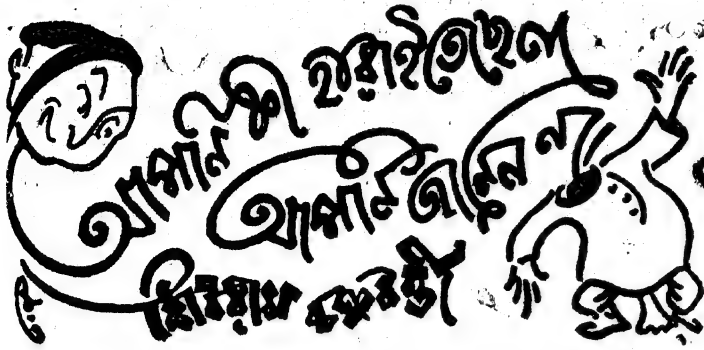 আপনি কী হারাইতেছেন
আপনি জানেন না
শিবরাম চক্রবর্ত্তী